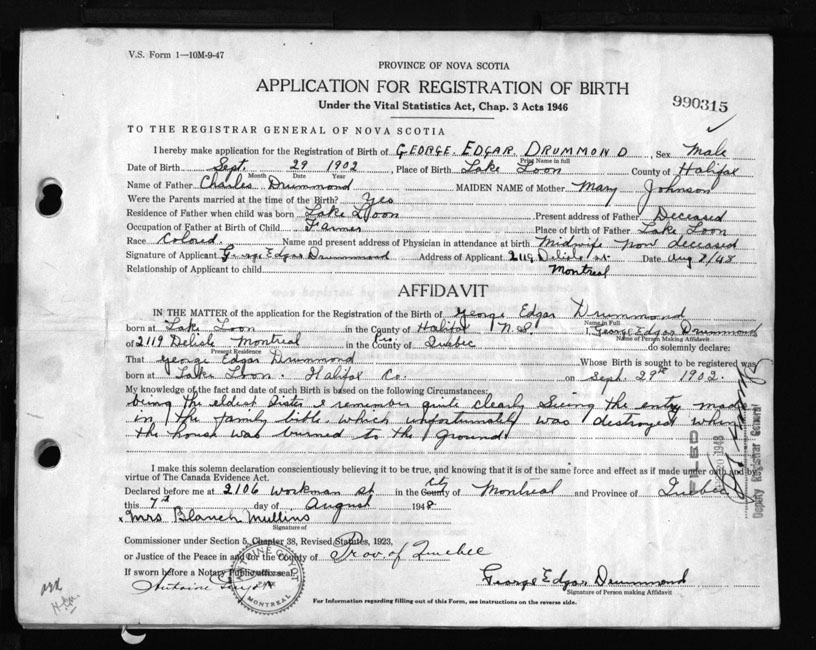 V.S. Form 1—10M-9-47
PROVINCE OF NOVA SCOTIA
APPLICATION FOR REGISTRATION OF BIRTH
Under the Vital Statistics Act, Chap. 3 Acts 1946
990315
TO THE REGISTRAR GENERAL OF NOVA SCOTIA
I hereby make application for the Registration of Birth of GEORGE EDGAR DRUMMOND, Sex Male
Print Name in full
Date of Birth Sept. 29 1902, Place of Birth Lake Loon County of Halifax
Month Date Year
Name of Father Charles Drummond MAIDEN NAME of Mother Mary Johnson
Were the Parents married at the time of the Birth? Yes
Residence of Father when child was born Lake Loon Present address of Father Deceased
Occupation of Father at Birth of Child Farmer Place of birth of Father Lake Loon
Race Colored. Name and present address of Physician in attendance at birth midwife now deceased
Signature of Applicant George Edgar Drummond Address of Applicant 2119 Delisle st. Date Aug 7/48
Relationship of Applicant to child Montreal
AFFIDAVIT
IN THE MATTER of the application for the Registration of the Birth of George Edgar Drummond
Name in Full
born at Lake Loon in the County of Halifax N.S. I, George Edgar Drummond
Name of Person Making Affidavit
of 2119 Delisle Montreal in the County of Pro Quebec do solemnly declare:
Present Residence
That George Edgar Drummond Whose Birth is sought to be registered was
born at Lake Loon. Halifax Co. on Sept. 29th 1902.
My knowledge of the fact and date of such Birth is based on the following Circumstances:
being the eldest Sister I remember quite clearly Seeing the entry made
in the family bible. which unfortunately was destroyed when
the house was burned to the Ground.
I make this solemn declaration conscientiously believing it to be true, and knowing that it is of the same force and effect as if made under oath and by
virtue of The Canada Evidence Act.
Declared before me at 2106 Workman st in the County of City Montreal and Province of Quebec
this 7th day of August 1948
Mrs Blanch Mullins
Signature of
Commissioner under Section 5, Chapter 38, Revised Statutes, 1923,
or Justice of the Peace in and for the County of Prov of Quebec
If sworn before a Notary Public affix seal
MONTREAL
George Edgar Drummond
Signature of Person making Affidavit
For Information regarding filling out of this Form, see instructions on the reverse side.
FILED
1948
Deputy Registrar General